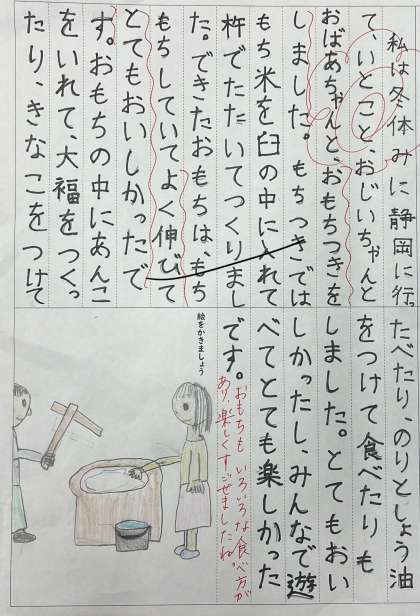 私は冬休みに静岡に行っ
て、いとこと、おじいちゃんと
おばあちゃんと、おもちつきを
しました。もちつきでは
もち米を臼の中に入れて
杵でたたいてつくりまし
た。できたおもちは、もち
もちしていてよく伸びて
とてもおいしかったで
す。おもちの中にあんこ
をいれて、大福をつくっ
たり、きなこをつけて
たべたり、のりとしょう油
をつけて食べたりも
しました。とてもおい
しかったし、みんなで遊
べてとても楽しかった
です。
おもちも いろいろな食べ方が
あり、楽しくすごせましたね。
絵をかきましょう